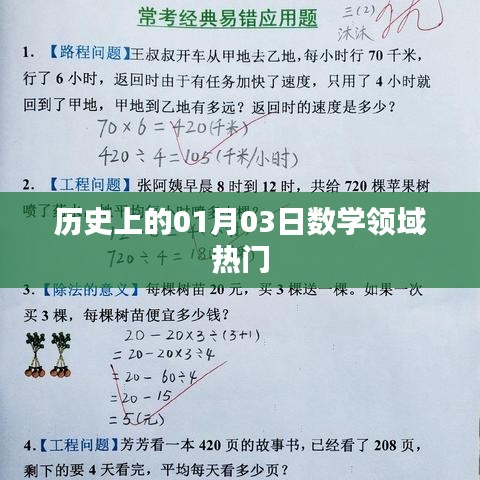 常考经典易错应用题
三(2)
沐沐
1. 【路程问题】王叔叔开车从甲地去乙地,每小时行 70 千米,
行了 6 小时，返回时由于有任务加快了速度，只用了 4 小时就
回到了甲地，甲地到乙地有多远？返回时的速度是多少？
70×6=420(千米)
420÷4=105(千米/小时)
2. 【工程问题】张阿姨早晨 8 时到 12 时，共给 720 棵苹果树
喷了
历史上的01月03日数学领域
热门
720÷4=
3. 【除法的意义】每棵树苗 20 元，买 3 棵送一棵。如果一次
买 3 棵，每棵树苗便宜多少钱？
20-20×3÷(3+1)
=20-20×3÷4
=20-60÷4
=20-15
=5(元)
4.【工程问题】芳芳看一本 420 页的故事书,已经看了 208 页，
剩下的要 4 天看完，平均每天看多少页？